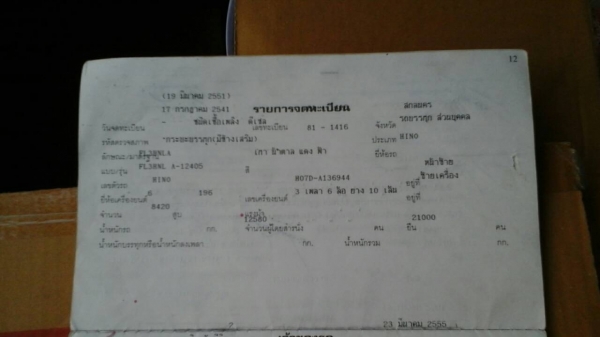 12
(19 มีนาคม 2551)
17 กรกฎาคม 2541 รายการจดทะเบียน สกลนคร
วันจดทะเบียน - ชนิดเชื้อเพลิง ดีเซล เลขทะเบียน 81-1416 จังหวัด รถบรรทุก ส่วนบุคคล
รหัสตรวจสภาพ "กระบะบรรทุก(มีข้างเสริม) ประเภท HINO
ลักษณะ/มาตรฐาน FL3HNLA (เทา น้ำตาล แดง ฟ้า ยี่ห้อรถ
แบบ/รุ่น FL3HNL A-12405 สี หน้าซ้าย
เลขตัวรถ HINO H07D-A136944 อยู่ที่ ซ้ายเครื่อง
ยี่ห้อเครื่องยนต์ 6 196 เลขเครื่องยนต์ 3 เพลา 6 ล้อ ยาง 10 เส้น อยู่ที่
จำนวน 8420 สูบ 12580 21000
น้ำหนักรถ กก. จำนวนผู้โดยสารนั่ง คน ยืน คน
น้ำหนักบรรทุกหรือน้ำหนักลงเพลา กก. น้ำหนักรวม กก.
23 มีนาคม 2555